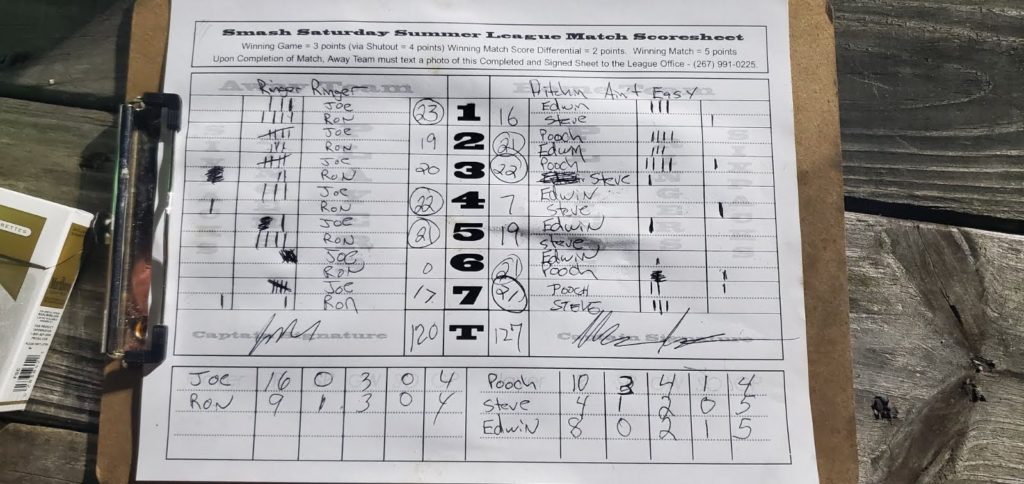 Smash Saturday Summer League Match Scoresheet
Winning Game = 3 points (via Shutout = 4 points) Winning Match Score Differential = 2 points. Winning Match = 5 points
Upon Completion of Match, Away Team must text a photo of this Completed and Signed Sheet to the League Office - (267) 991-0225.
Ringer Pitchin Ain't Easy
Joe 23 1 16 Edwin
Ron Steve
Joe 19 2 21 Pooch
Ron Edwin
Joe 20 3 22 Pooch
Ron Steve
Joe 22 4 7 Edwin
Ron Steve
Joe 21 5 19 Edwin
Ron Steve
Joe 0 6 21 Edwin
Ron Pooch
Joe 17 7 21 Pooch
Ron Steve
Captain Signature 120 T 127
Joe 16 0 3 0 4 Pooch 10 3 4 1 4
Ron 9 1 3 0 4 Steve 4 1 2 0 5
Edwin 8 0 2 1 5